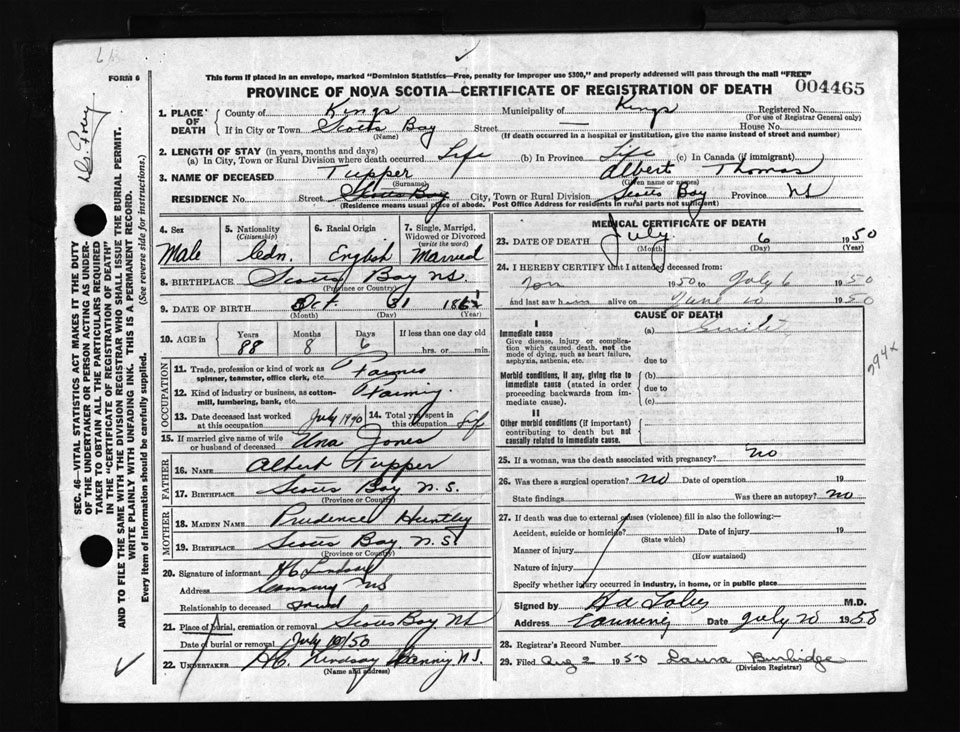 FORM 6
This form if placed in an envelope, marked "Dominion Statistics—Free, penalty for improper use $300," and properly addressed will pass through the mail "FREE"
PROVINCE OF NOVA SCOTIA—CERTIFICATE OF REGISTRATION OF DEATH 004465
1. PLACE OF DEATH
County of Kings Municipality of Kings Registered No.
(For use of Registrar General only)
If in City or Town Scotts Bay Street — House No.
(Name) (If death occurred in a hospital or institution, give the name instead of street and number)
2. LENGTH OF STAY (in years, months and days)
(a) In City, Town or Rural Division where death occurred Life (b) In Province Life (c) In Canada (if immigrant)
3. NAME OF DECEASED Tupper Albert Thomas
(Surname) (Given name or names)
RESIDENCE No. Street Scotts Bay City, Town or Rural Division Scotts Bay Province NS
(Residence means usual place of abode. Post Office Address for residents in rural parts not sufficient)
4. Sex Male
5. Nationality (Citizenship) Cdn.
6. Racial Origin English
7. Single, Married, Widowed or Divorced (write the word) Married
8. BIRTHPLACE Scotts Bay NS.
(Province or Country)
9. DATE OF BIRTH Oct. 31 186
(Month) (Day) (Year)
10. AGE in Years 88 Months 8 Days 6 If less than one day old hrs. or min.
OCCUPATION
11. Trade, profession or kind of work as spinner, teamster, office clerk, etc. Farmer
12. Kind of industry or business, as cotton-mill, lumbering, bank, etc. Farming
13. Date deceased last worked at this occupation July 14. Total yrs spent in this occupation Life
15. If married give name of wife or husband of deceased Ana Jones
FATHER
16. NAME Albert Tupper
17. BIRTHPLACE Scotts Bay N.S.
(Province or Country)
MOTHER
18. MAIDEN NAME Prudence Huntley
19. BIRTHPLACE Scotts Bay N.S.
(Province or Country)
20. Signature of informant HC Lindsay
Address Canning NS
Relationship to deceased friend
21. Place of burial, cremation or removal Scotts Bay NS
Date of burial or removal July /50
22. UNDERTAKER HC Lindsay Canning N.S.
(Name and address)
MEDICAL CERTIFICATE OF DEATH
23. DATE OF DEATH July 6 1950
(Month) (Day) (Year)
24. I HEREBY CERTIFY that I attended deceased from:
1950 to July 6 1950
and last saw him alive on June 1950
CAUSE OF DEATH
I
Immediate cause (a) Senility
Give disease, injury or complication which caused death, not the mode of dying, such as heart failure, asphyxia, asthenia, etc. due to
Morbid conditions, if any, giving rise to immediate cause (stated in order proceeding backwards from immediate cause). (b) due to (c)
II
Other morbid conditions (if important) contributing to death but not causally related to immediate cause.
794x
25. If a woman, was the death associated with pregnancy? no
26. Was there a surgical operation? no Date of operation 19
State findings Was there an autopsy? no
27. If death was due to external causes (violence) fill in also the following:—
Accident, suicide or homicide? Date of injury 19
(State which)
Manner of injury (How sustained)
Nature of injury
Specify whether injury occurred in industry, in home, or in public place
Signed by M.D.
Address Canning Date July 20 1950
28. Registrar's Record Number
29. Filed Aug 2 1950 Laura Burbidge
(Division Registrar)
SEC. 46—VITAL STATISTICS ACT MAKES IT THE DUTY
OF THE UNDERTAKER OR PERSON ACTING AS UNDER-
TAKER TO OBTAIN ALL THE PARTICULARS REQUIRED
IN THE "CERTIFICATE OF REGISTRATION OF DEATH"
AND TO FILE THE SAME WITH THE DIVISION REGISTRAR WHO SHALL ISSUE THE BURIAL PERMIT.
WRITE PLAINLY WITH UNFADING INK. THIS IS A PERMANENT RECORD.
Every item of information should be carefully supplied. (See reverse side for instructions.)